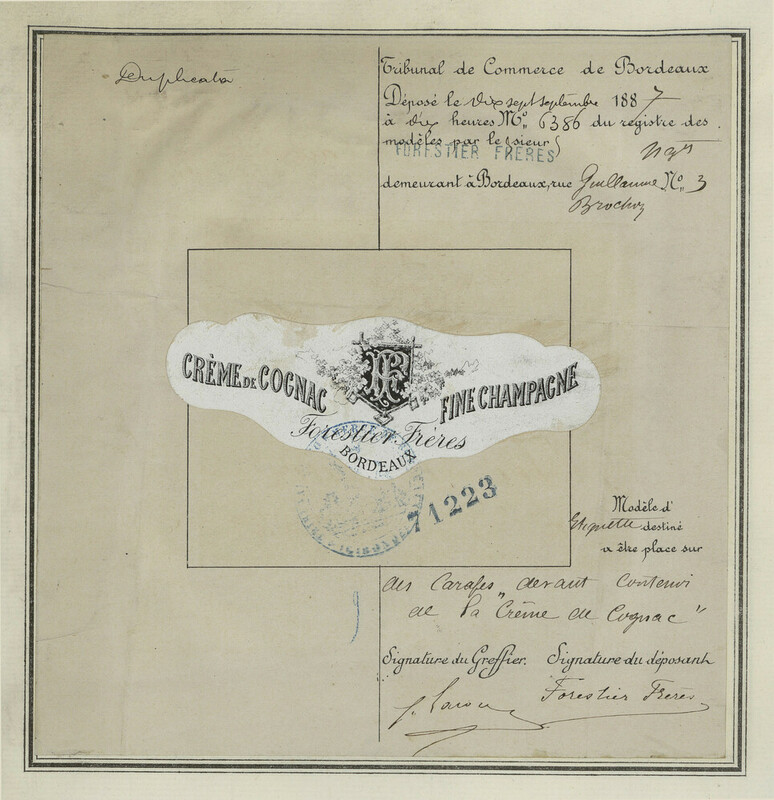 Duplicata
Tribunal de Commerce de Bordeaux
Déposé le dix sept septembre 1887
à dix heures No. 6386 du registre des
modèles par le sieur
FORESTIER FRÈRES
demeurant à Bordeaux, rue Guillaume No. 3
Brochon
CRÈME DE COGNAC
FINE CHAMPAGNE
Forestier Frères
BORDEAUX
71223
Modèle d'
Etiquette destiné
a être place sur
des Carafes devant contenir
de la "Crème de Cognac"
Signature du Greffier. Signature du déposant
Forestier Frères